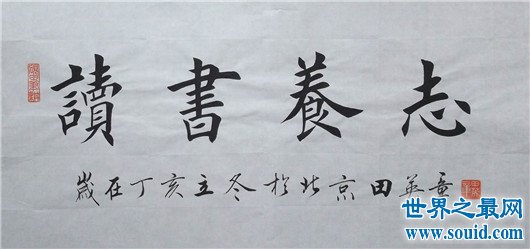 讀書養志
歲在丁亥立冬於北京田英章
世界之最网
www.souid.com